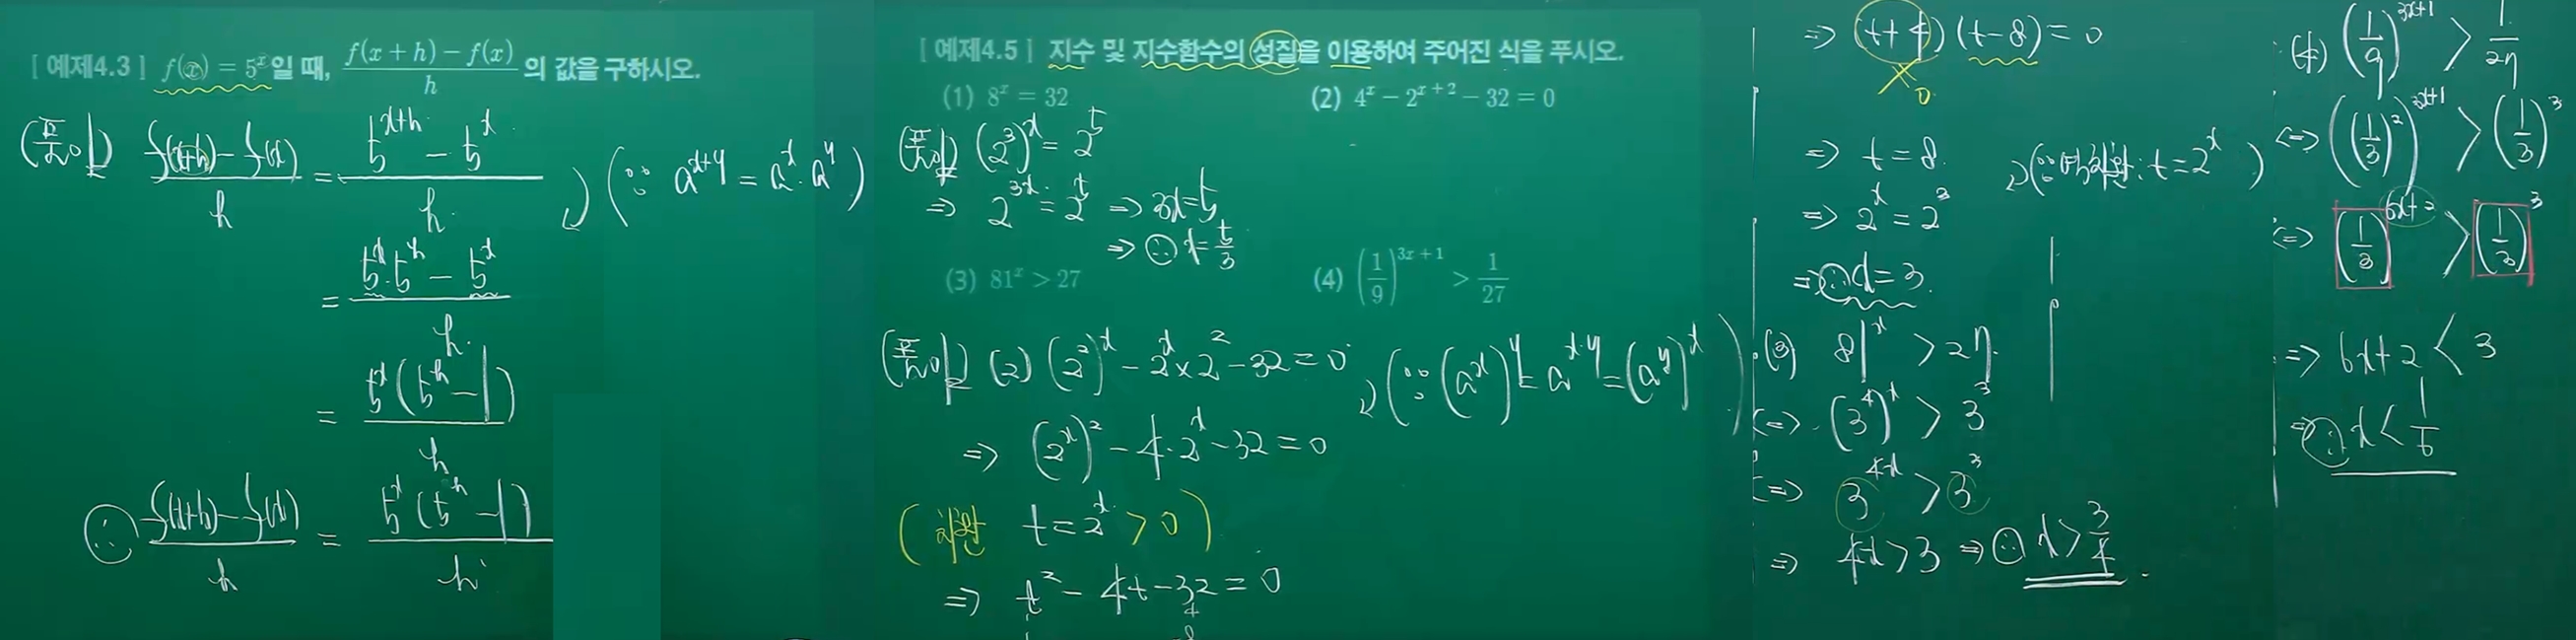 [ 예제4.3 ] f(x) = 5^x일 때, \frac{f(x+h) - f(x)}{h} 의 값을 구하시오.
(풀이) \frac{f(x+h) - f(x)}{h} = \frac{5^{x+h} - 5^x}{h} (∵ a^{x+y} = a^x · a^y)
= \frac{5^x · 5^h - 5^x}{h}
= \frac{5^x(5^h - 1)}{h}
∴ \frac{f(x+h) - f(x)}{h} = \frac{5^x(5^h - 1)}{h}
[ 예제4.5 ] 지수 및 지수함수의 성질을 이용하여 주어진 식을 푸시오.
(1) 8^x = 32
(2) 4^x - 2^{x+2} - 32 = 0
(풀이) (2^3)^x = 2^5
⇒ 2^{3x} = 2^5 ⇒ 3x = 5
⇒ ∴ x = \frac{5}{3}
(3) 81^x > 27
(4) (\frac{1}{9})^{3x+1} > \frac{1}{27}
(풀이) (2) (2^2)^x - 2^x × 2^2 - 32 = 0 (∵ (a^x)^y = a^{x·y} = (a^y)^x)
⇒ (2^x)^2 - 4 · 2^x - 32 = 0
(치환 t = 2^x > 0)
⇒ t^2 - 4t - 32 = 0
4
8
⇒ (t+4)(t-8) = 0
0
⇒ t = 8 (∵ 역치환: t = 2^x)
⇒ 2^x = 2^3
⇒ ∴ x = 3
(3) 81^x > 27
⇔ (3^4)^x > 3^3
⇔ 3^{4x} > 3^3
⇒ 4x > 3 ⇒ ∴ x > \frac{3}{4}
(4) (\frac{1}{9})^{3x+1} > \frac{1}{27}
⇔ ((\frac{1}{3})^2)^{3x+1} > (\frac{1}{3})^3
⇔ (\frac{1}{3})^{6x+2} > (\frac{1}{3})^3
⇒ 6x+2 < 3
⇒ ∴ x < \frac{1}{6}